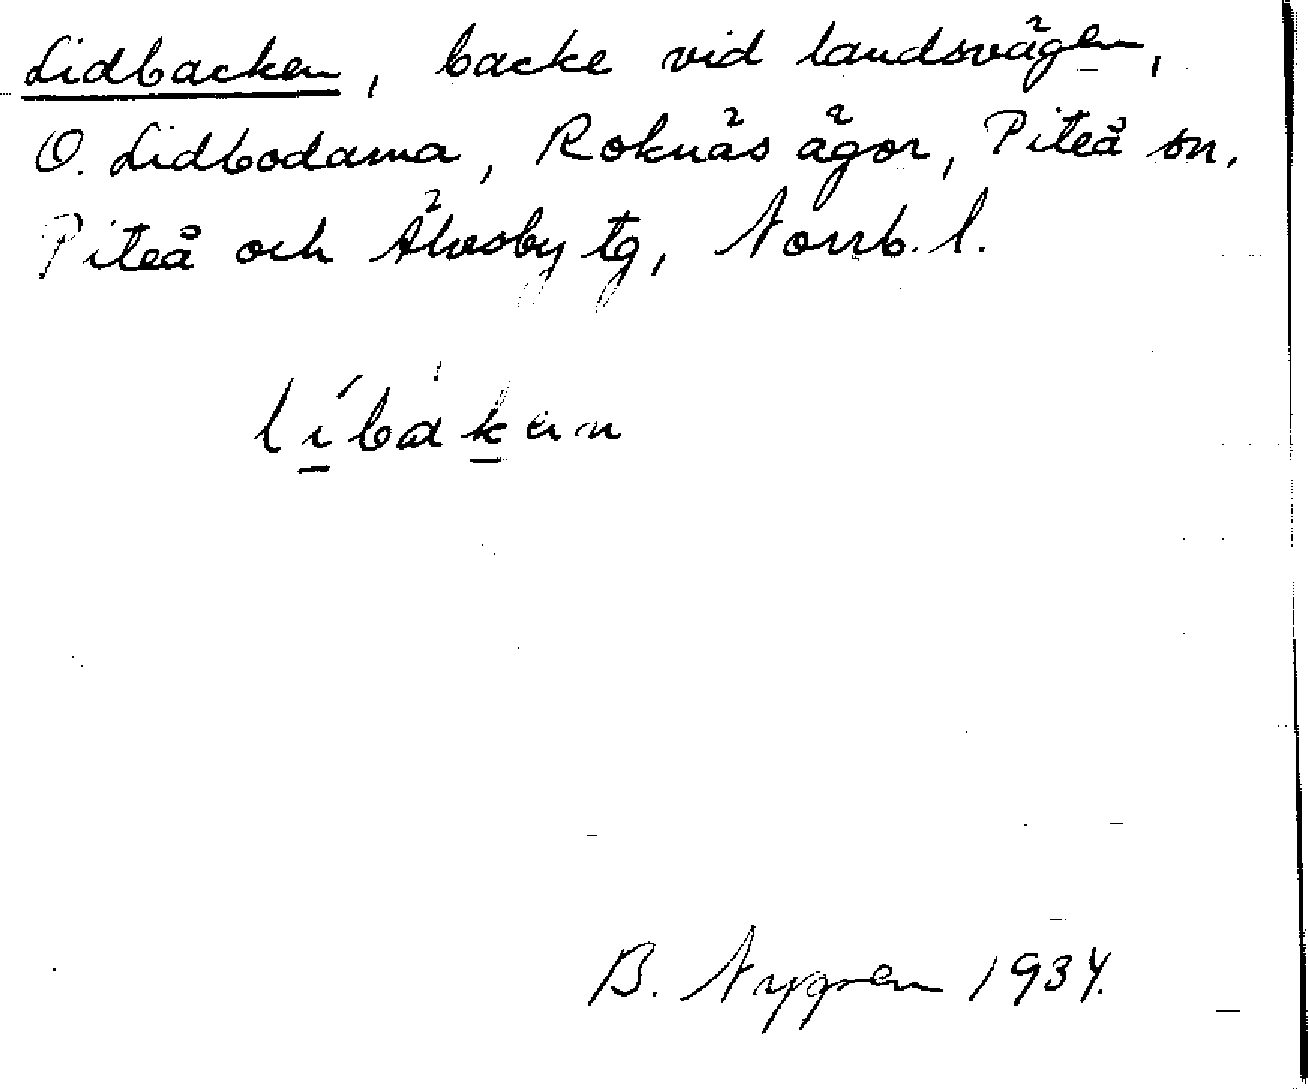 Lidbacken, backe vid landsvägen,
O. Lidbodarna, Roknäs ägor, Piteå sn,
Piteå och Älvsby tg, Norrb. l.
líbákən
B. Nygren 1934.